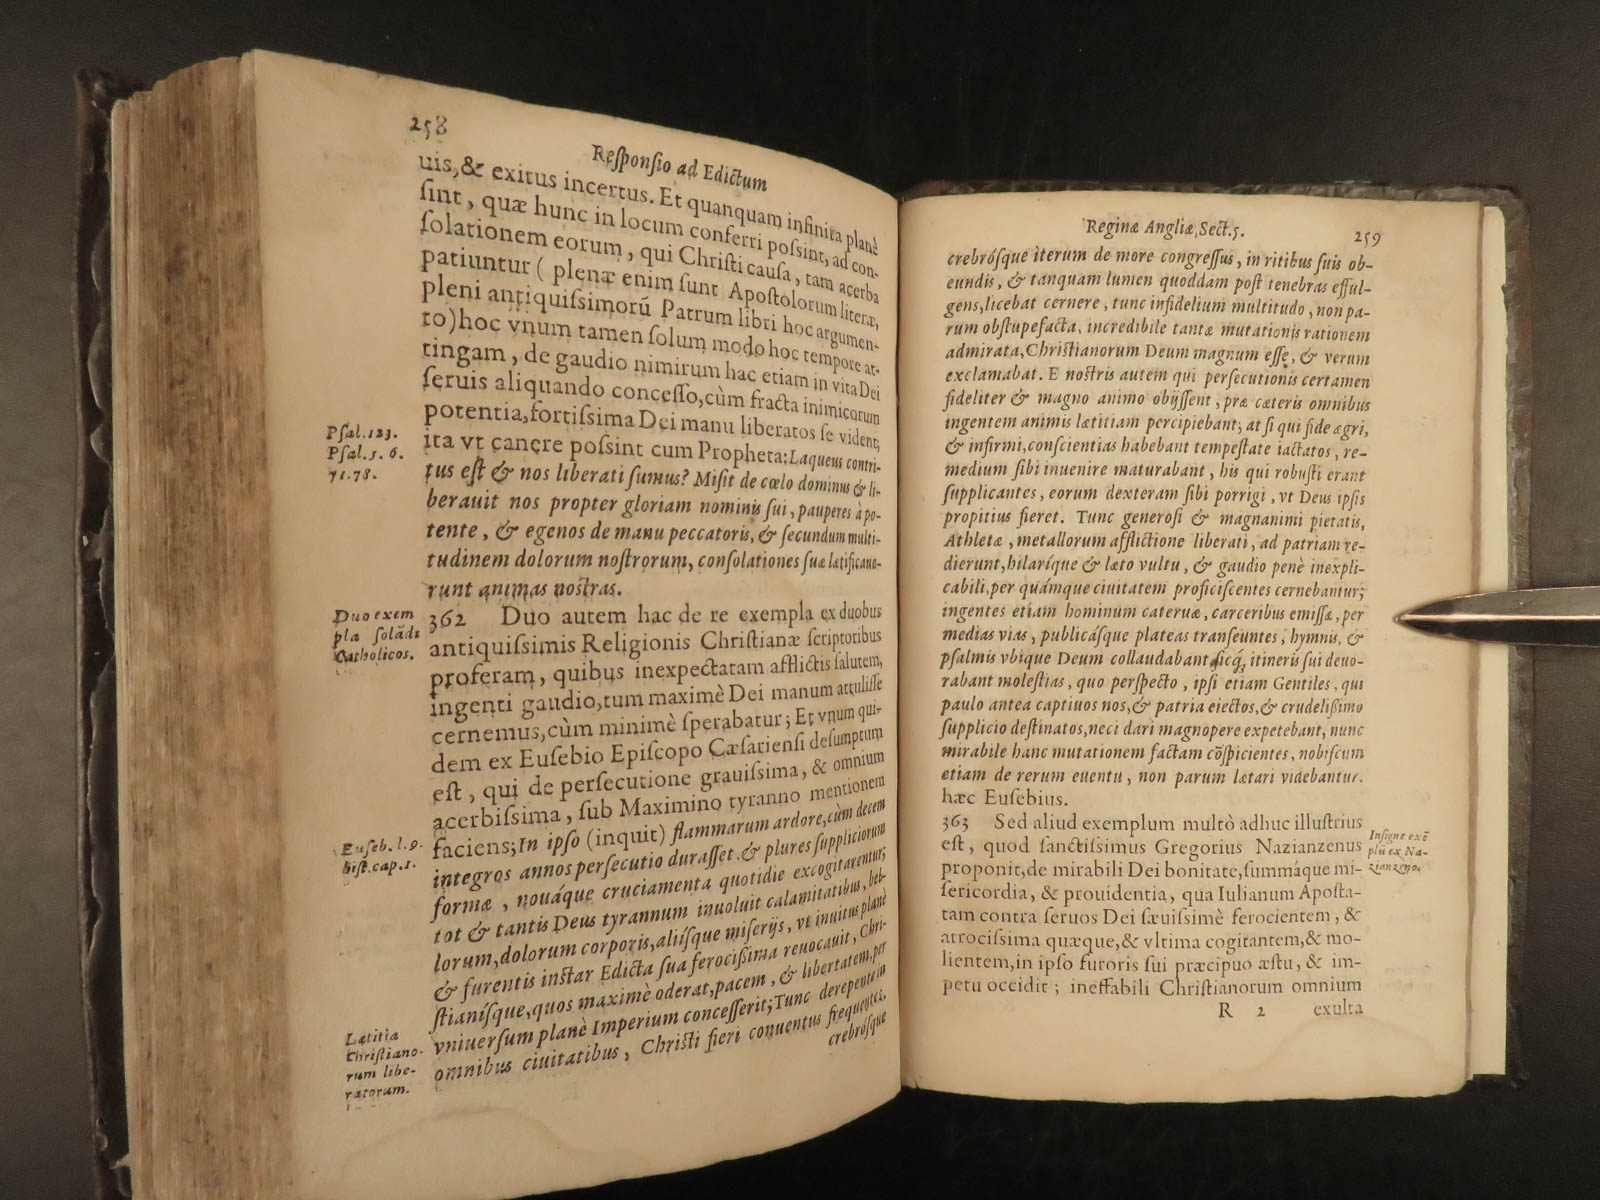 258
Reſponſio ad Edictum
uis, & exitus incertus. Et quanquam infinita planè
ſint, quæ hunc in locum conferri poſſint, ad con-
ſolationem eorum, qui Chriſti cauſa, tam acerba
patiuntur ( plenæ enim ſunt Apoſtolorum literæ,
pleni antiquiſsimorū Patrum libri hoc argumen-
to) hoc vnum tamen ſolum modo hoc tempore at-
tingam, de gaudio nimirum hac etiam in vita Dei
ſeruis aliquando conceſſo, cùm fracta inimicorum
potentia, fortiſsima Dei manu liberatos ſe vident,
ita vt canere poſsint cum Propheta: Laqueus contri-
tus eſt & nos liberati ſumus? Miſit de cœlo dominus & li-
berauit nos propter gloriam nominis ſui, pauperes à po-
tente, & egenos de manu peccatoris, & ſecundum multi-
tudinem dolorum noſtrorum, conſolationes ſuæ lætificaue-
runt animas noſtras.
Pſal. 123.
Pſal. 5. 6.
71. 78.
362 Duo autem hac de re exempla ex duobus
antiquiſsimis Religionis Chriſtianæ ſcriptoribus
proferam, quibus inexpectatam afflictis ſalutem,
ingenti gaudio, tum maximè Dei manum attuliſſe
cernemus, cùm minimè ſperabatur; Et vnum qui-
dem ex Euſebio Epiſcopo Cæſarienſi deſumptum
eſt, qui de perſecutione grauiſsima, & omnium
acerbiſsima, ſub Maximino tyranno mentionem
faciens; In ipſo (inquit) flammarum ardore, cùm decem
integros annos perſecutio duraſſet & plures ſuppliciorum
formæ, nouáque cruciamenta quotidie excogitarentur;
tot & tantis Deus tyrannum inuoluit calamitatibus, bel-
lorum, dolorum corporis, aliíſque miſerijs, vt inuitus planè
& furentis inſtar Edicta ſua ferociſsima reuocauit, Chri-
ſtianíſque, quos maximè oderat, pacem, & libertatem, per
vniuerſum planè Imperium conceſſerit; Tunc derepente in
omnibus ciuitatibus, Chriſti fieri conuentus frequentes,
crebróſque
Duo exem
pla ſolādi
Catholicos.
Euſeb. l. 9.
hiſt. cap. 1.
Lætitia
Chriſtiano-
rum libe-
ratorum.
Reginæ Angliæ, Sect. 5.
259
crebróſque iterum de more congreſſus, in ritibus ſuis ob-
eundis, & tanquam lumen quoddam poſt tenebras efful-
gens, licebat cernere, tunc infidelium multitudo, non pa-
rum obſtupefacta, incredibile tantæ mutationis rationem
admirata, Chriſtianorum Deum magnum eſſe, & verum
exclamabat. E noſtris autem qui perſecutionis certamen
fideliter & magno animo obijſſent, præ cæteris omnibus
ingentem animis lætitiam percipiebant; at ſi qui fide ægri,
& infirmi, conſcientias habebant tempeſtate iactatos, re-
medium ſibi inuenire maturabant, his qui robuſti erant
ſupplicantes, eorum dexteram ſibi porrigi, vt Deus ipſis
propitius fieret. Tunc generoſi & magnanimi pietatis,
Athletæ, metallorum afflictione liberati, ad patriam re-
dierunt, hilaríque & læto vultu, & gaudio penè inexpli-
cabili, per quámque ciuitatem proficiſcentes cernebantur;
ingentes etiam hominum cateruæ, carceribus emiſſæ, per
medias vias, publicáſque plateas tranſeuntes, hymnis, &
pſalmis vbique Deum collaudabant, ſicq́; itineris ſui deuo-
rabant moleſtias, quo perſpecto, ipſi etiam Gentiles, qui
paulo antea captiuos nos, & patria eiectos, & crudeliſsimo
ſupplicio deſtinatos, neci dari magnopere expetebant, nunc
mirabile hanc mutationem factam cōſpicientes, nobiſcum
etiam de rerum euentu, non parum lætari videbantur.
hæc Euſebius.
363 Sed aliud exemplum multò adhuc illuſtrius
eſt, quod ſanctiſsimus Gregorius Nazianzenus
proponit, de mirabili Dei bonitate, ſummáque mi-
ſericordia, & prouidentia, qua Iulianum Apoſta-
tam contra ſeruos Dei ſæuiſsimè ferocientem, &
atrociſsima quæque, & vltima cogitantem, & mo-
lientem, in ipſo furoris ſui præcipuo æſtu, & im-
petu occidit; ineffabili Chriſtianorum omnium
R 2 exulta
Inſigne exē
plū ex Na-
zianzeno.